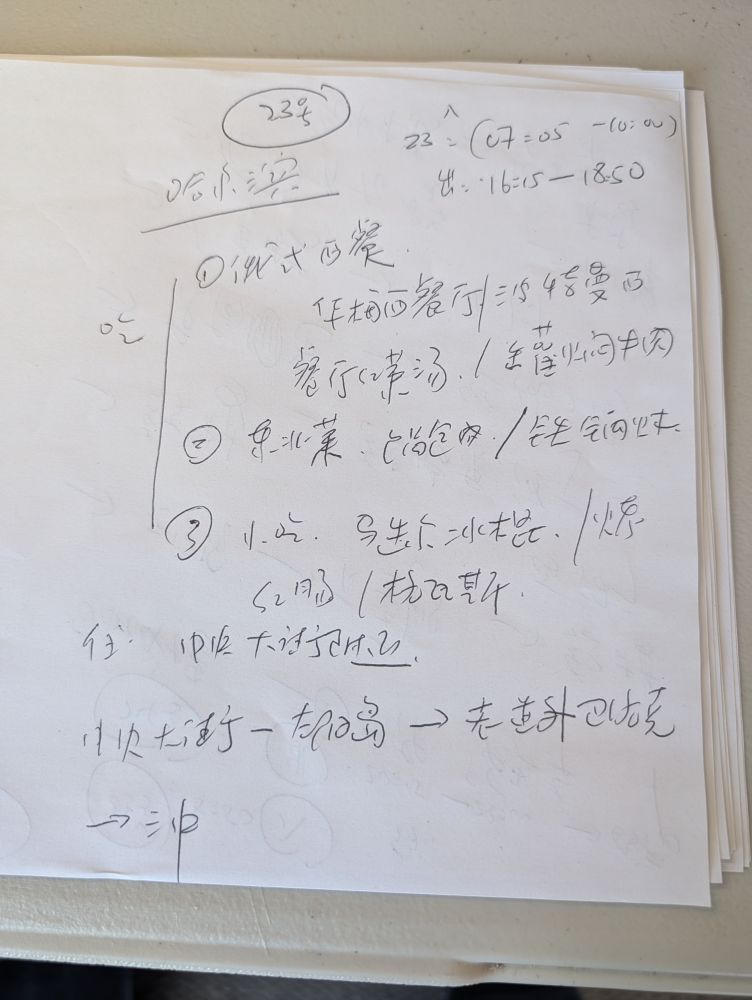 23号
23入=(07:05-10:00)
出:16:15-18:50
哈尔滨
吃
①俄式西餐.
华梅西餐厅/波特曼西
餐厅红菜汤./罐焖牛肉
② 东北菜.锅包肉./铁锅炖.
③ 小吃.马迭尔冰棍./
红肠/格瓦斯.
住:中央大街
中央大街-太阳岛→老道外巴洛克
→